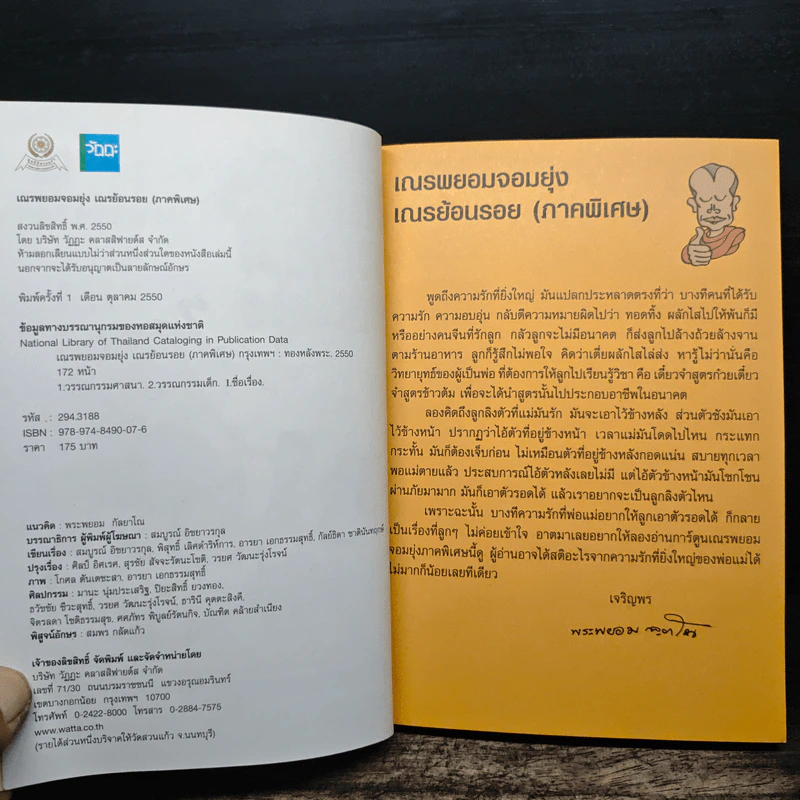 วัฏฏะ
เณรพยอมจอมยุ่ง เณรย้อนรอย (ภาคพิเศษ)
สงวนลิขสิทธิ์ พ.ศ. 2550
โดย บริษัท วัฏฏะ คลาสสิฟายด์ส จำกัด
ห้ามลอกเลียนแบบไม่ว่าส่วนหนึ่งส่วนใดของหนังสือเล่มนี้
นอกจากจะได้รับอนุญาตเป็นลายลักษณ์อักษร
พิมพ์ครั้งที่ 1 เดือน ตุลาคม 2550
ข้อมูลทางบรรณานุกรมของหอสมุดแห่งชาติ
National Library of Thailand Cataloging in Publication Data
เณรพยอมจอมยุ่ง เณรย้อนรอย (ภาคพิเศษ) กรุงเทพฯ : ทองหลังพระ, 2550
172 หน้า
1.วรรณกรรมศาสนา. 2.วรรณกรรมเด็ก. I.ชื่อเรื่อง.
รหัส : 294.3188
ISBN : 978-974-8490-07-6
ราคา 175 บาท
แนวคิด : พระพยอม กัลยาโณ
บรรณาธิการ ผู้พิมพ์ผู้โฆษณา : สมบูรณ์ อิชยาวรกุล
เขียนเรื่อง : สมบูรณ์ อิชยาวรกุล, พิสุทธิ์ เลิศดำริห์การ, อารยา เอกธรรมสุทธิ์, กัลย์ธิดา ชาตินันทฤกษ์
ปรุงเรื่อง : ศิลป์ อิศเรศ, สุรชัย สัจจะวัฒนะโชติ, วรยศ วัฒนะรุ่งโรจน์
ภาพ : โกศล ตันเตชะสา, อารยา เอกธรรมสุทธิ์
ศิลปกรรม : มานะ นุ่มประเสริฐ, ปิยะสิทธิ์ ยวงทอง,
ธวัชชัย ชีวะสุทธิ์, วรยศ วัฒนะรุ่งโรจน์, ธารินี คุตตะสิงคี,
จิตรลดา โชติธรรมสุข, ศศภัทร พิบูลย์รัตนกิจ, บัณฑิต คล้ายสำเนียง
พิสูจน์อักษร : สมพร กลัดแก้ว
เจ้าของลิขสิทธิ์ จัดพิมพ์ และจัดจำหน่ายโดย
บริษัท วัฏฏะ คลาสสิฟายด์ส จำกัด
เลขที่ 71/30 ถนนบรมราชชนนี แขวงอรุณอมรินทร์
เขตบางกอกน้อย กรุงเทพฯ 10700
โทรศัพท์ 0-2422-8000 โทรสาร 0-2884-7575
www.watta.co.th
(รายได้ส่วนหนึ่งบริจาคให้วัดสวนแก้ว จ.นนทบุรี)
เณรพยอมจอมยุ่ง
เณรย้อนรอย (ภาคพิเศษ)
พูดถึงความรักที่ยิ่งใหญ่ มันแปลกประหลาดตรงที่ว่า บางทีคนที่ได้รับ
ความรัก ความอบอุ่น กลับตีความหมายผิดไปว่า ทอดทิ้ง ผลักไสไปให้พ้นก็มี
หรืออย่างคนจีนที่รักลูก กลัวลูกจะไม่มีอนาคต ก็ส่งลูกไปล้างถ้วยล้างจาน
ตามร้านอาหาร ลูกก็รู้สึกไม่พอใจ คิดว่าเตี่ยผลักไสไล่ส่ง หารู้ไม่ว่านั่นคือ
วิทยายุทธ์ของผู้เป็นพ่อ ที่ต้องการให้ลูกไปเรียนรู้วิชา คือ เดี๋ยวจำสูตรก๋วยเตี๋ยว
จำสูตรข้าวต้ม เพื่อจะได้นำสูตรนั้นไปประกอบอาชีพในอนาคต
ลองคิดถึงลูกลิงตัวที่แม่มันรัก มันจะเอาไว้ข้างหลัง ส่วนตัวชังมันเอา
ไว้ข้างหน้า ปรากฏว่าไอ้ตัวที่อยู่ข้างหน้า เวลาแม่มันโดดไปไหน กระแทก
กระทั้น มันก็ต้องเจ็บก่อน ไม่เหมือนตัวที่อยู่ข้างหลังกอดแน่น สบายทุกเวลา
พอแม่ตายแล้ว ประสบการณ์ไอ้ตัวหลังเลยไม่มี แต่ไอ้ตัวข้างหน้ามันโชกโชน
ผ่านภัยมามาก มันก็เอาตัวรอดได้ แล้วเราอยากจะเป็นลูกลิงตัวไหน
เพราะฉะนั้น บางทีความรักที่พ่อแม่อยากให้ลูกเอาตัวรอดได้ ก็กลาย
เป็นเรื่องที่ลูกๆ ไม่ค่อยเข้าใจ อาตมาเลยอยากให้ลองอ่านการ์ตูนเณรพยอม
จอมยุ่งภาคพิเศษนี้ดู ผู้อ่านอาจได้สติอะไรจากความรักที่ยิ่งใหญ่ของพ่อแม่ได้
ไม่มากก็น้อยเลยทีเดียว
เจริญพร
พระพยอม